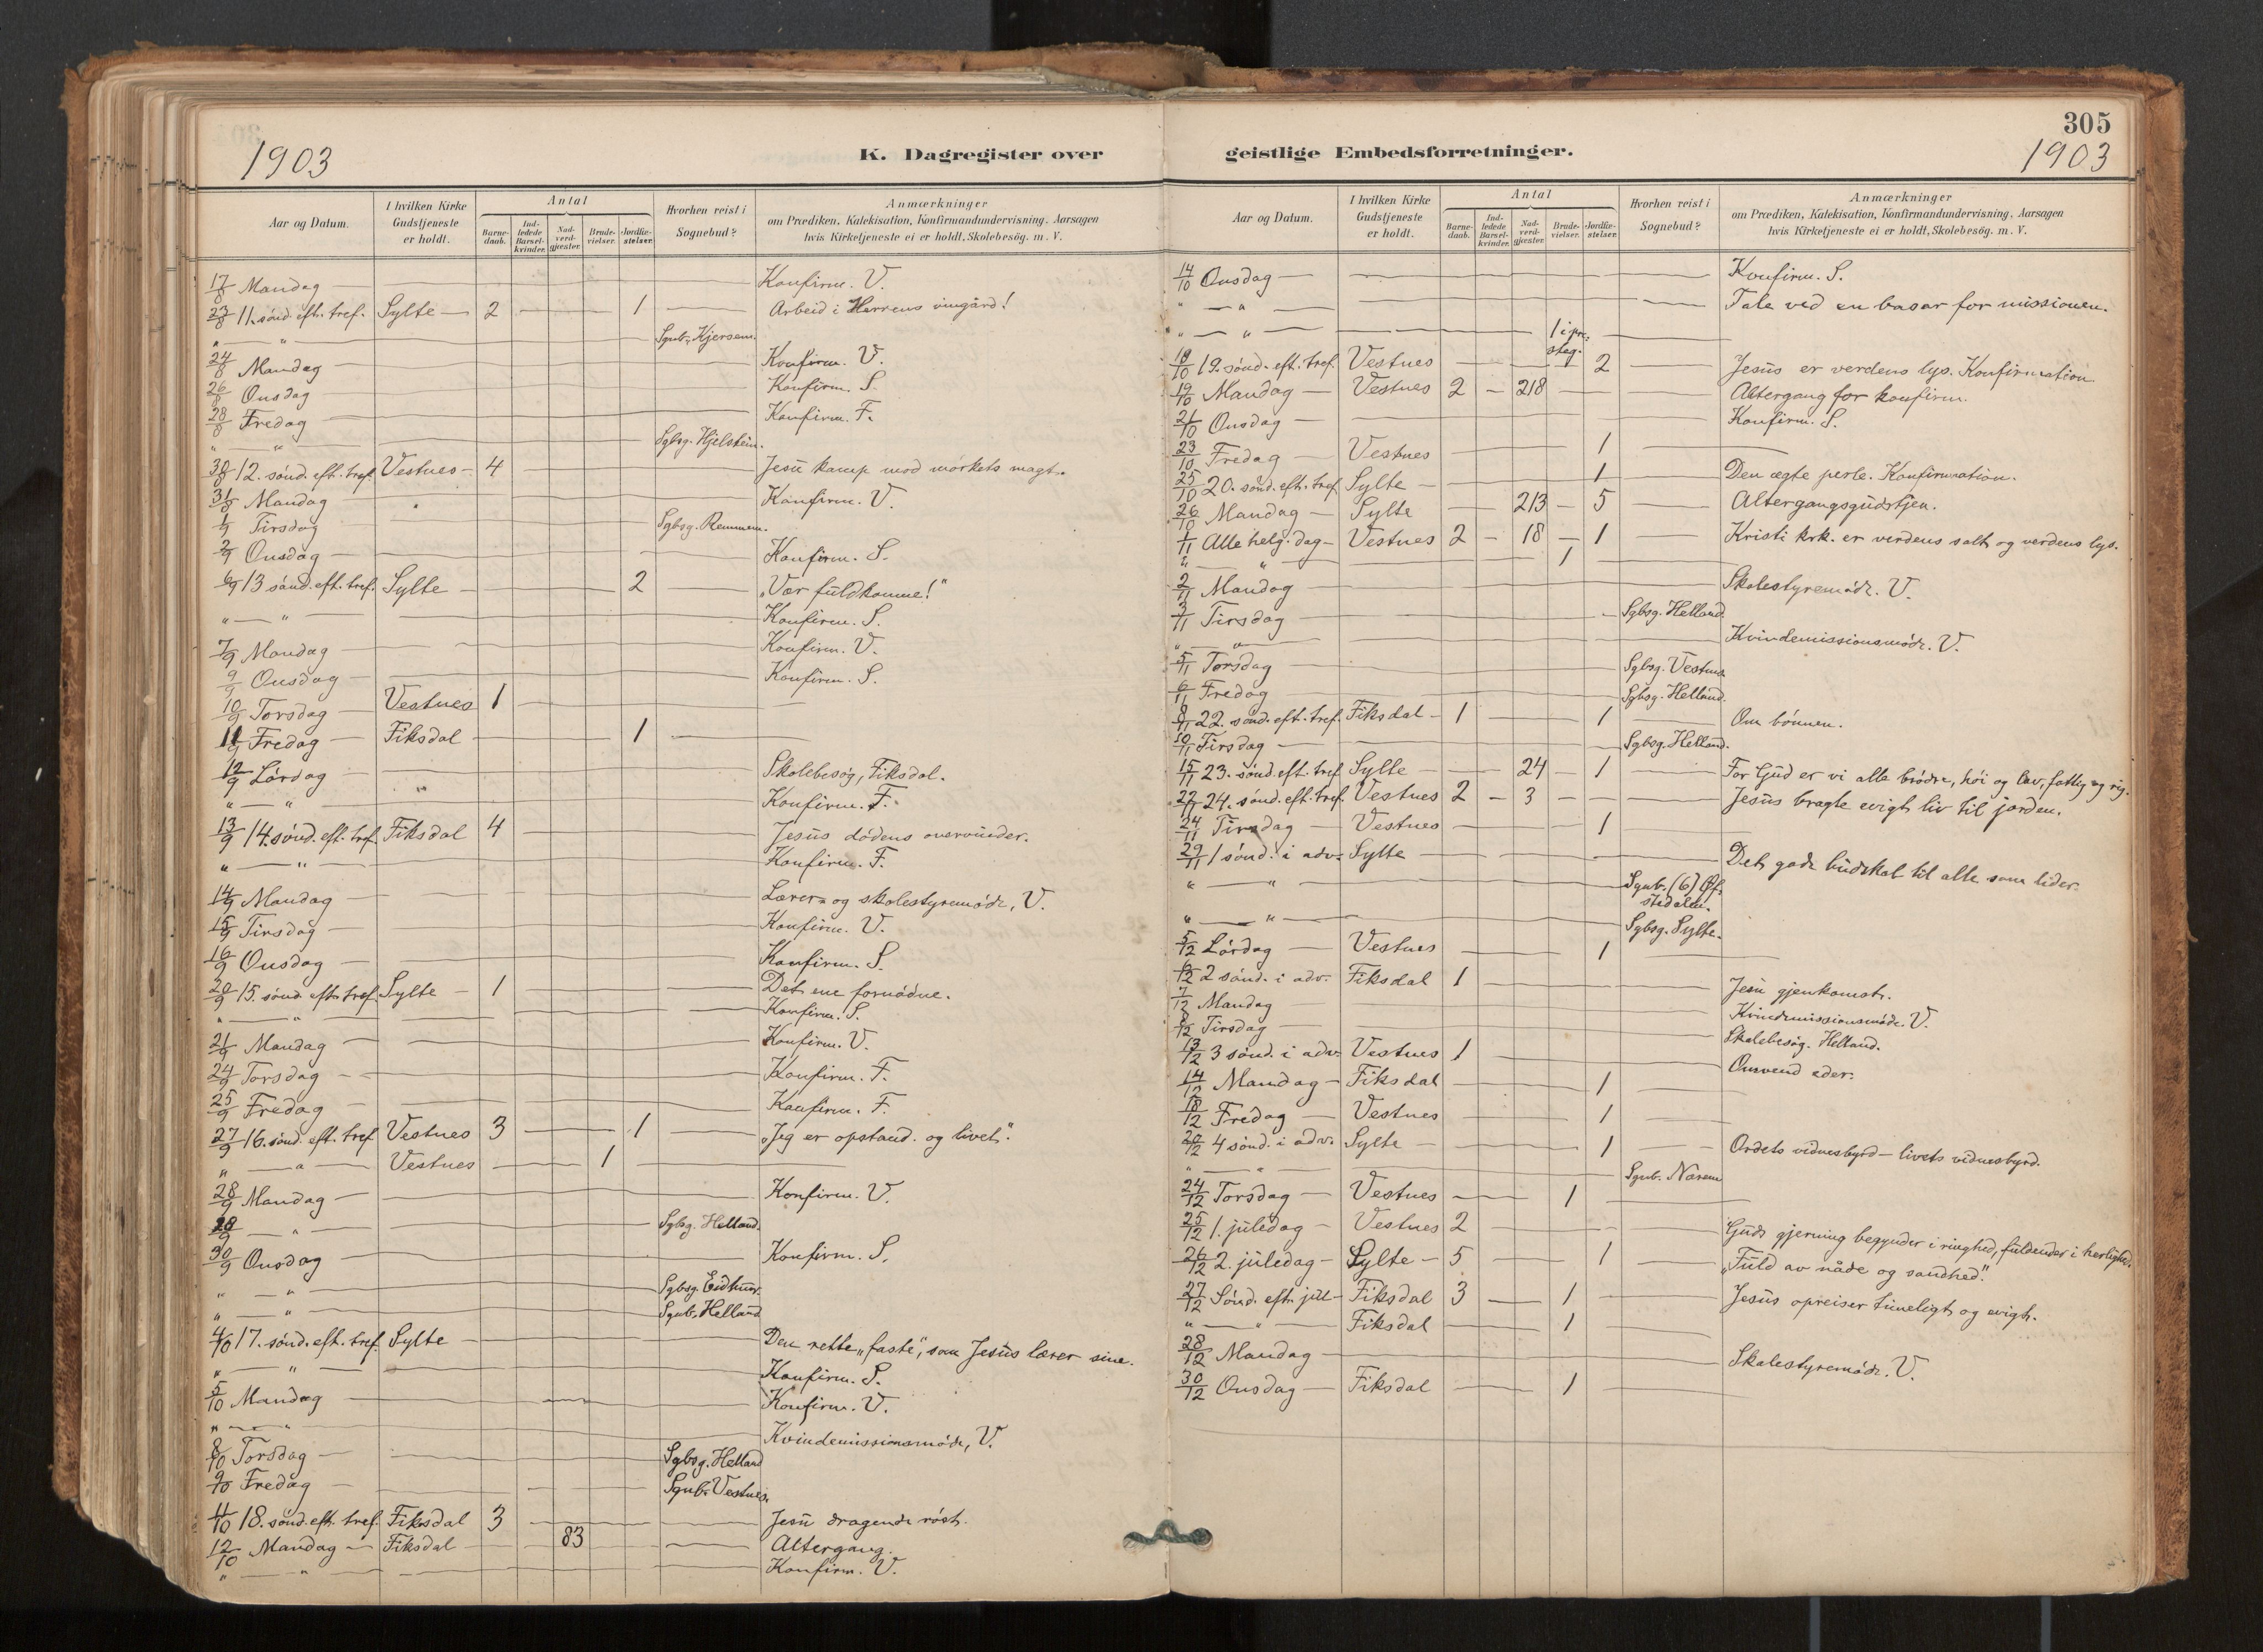 305
1903
K. Dagregister over
geistlige Embedsforretninger.
1903
Aar og Datum.
I hvilken Kirke Gudstjeneste er holdt.
Antal
Barne-daab.
Ind-ledede Barsel-kvinder.
Nad-verd-gjester.
Brude-vielser.
Jordfæ-stelser.
Hvorhen reist i Sognebud?
Anmærkninger
om Prædiken, Katekisation, Konfirmandundervisning, Aarsagen
hvis Kirketjeneste ei er holdt, Skolebesög. m. V.
17/8 Mandag — Konfirm. V.
23/8 11. sönd. eft. tref. Sylte — 2 — 1 — Arbeid i Herrens vingård!
" — " — Sgnb. Kjersem.
24/8 Mandag — Konfirm. V.
26/8 Onsdag — Konfirm. S.
28/8 Fredag — Konfirm. F.
" — " — Sgbsg. Hjelstein.
30/8 12. sönd. eft. tref. Vestnes — 4 — Jesu kamp mod mörkets magt.
31/8 Mandag — Konfirm. V.
1/9 Tirsdag — Sgbsg. Remmem.
2/9 Onsdag — Konfirm. S.
6/9 13 sönd. eft. tref. Sylte — 2 — „Vær fuldkomne!"
" — " — Konfirm. S.
7/9 Mandag — Konfirm. V.
9/9 Onsdag — Konfirm. S.
10/9 Torsdag — Vestnes 1 —
11/9 Fredag — Fiksdal — 1 —
12/9 Lördag — Skolebesög, Fiksdal.
" — " — Konfirm. F.
13/9 14. sönd. eft. tref. Fiksdal 4 — Jesus dödens overvinder.
" — " — Konfirm. F.
14/9 Mandag — Lærer- og skolestyremöde, V.
15/9 Tirsdag — Konfirm. V.
16/9 Onsdag — Konfirm. S.
20/9 15. sönd. eft. tref. Sylte — 1 — Det ene fornödne.
" — " — Konfirm. S.
21/9 Mandag — Konfirm. V.
24/9 Torsdag — Konfirm. F.
25/9 Fredag — Konfirm. F.
27/9 16. sönd. eft. tref. Vestnes 3 — 1 — „Jeg er opstand. og livet".
" — " — Vestnes — 1 —
28/9 Mandag — Konfirm. V.
28/9 — " — Sgbsg. Helland.
30/9 Onsdag — Konfirm. S.
" — " — Sgbsg. Eidhus.
" — " — Sgnb. Helland
4/10 17. sönd. eft. tref. Sylte — Den rette „faste", som Jesus lærer sine.
" — " — Konfirm. S.
5/10 Mandag — Konfirm. V.
" — " — Kvindemissionsmöde, V.
8/10 Torsdag — Sgbsg. Helland
9/10 Fredag — Sgnb. Vestnes.
11/10 18. sönd. eft. tref. Fiksdal 3 — Jesu dragende röst.
12/10 Mandag — Fiksdal — 83 — Altergang.
" — " — Konfirm. V.
Aar og Datum.
I hvilken Kirke Gudstjeneste er holdt.
Antal
Barne-daab.
Ind-ledede Barsel-kvinder.
Nad-verd-gjester.
Brude-vielser.
Jordfæ-stelser.
Hvorhen reist i Sognebud?
Anmærkninger
om Prædiken, Katekisation, Konfirmandundervisning, Aarsagen
hvis Kirketjeneste ei er holdt, Skolebesög. m. V.
14/10 Onsdag — Konfirm. S.
" — " — Tale ved en basar for missionen.
" — " — 1 i pre-steg. —
18/10 19. sönd. eft. tref. Vestnes — 2 — Jesus er verdens lys. Konfirmation.
19/10 Mandag — Vestnes 2 — 218 — Altergang for konfirm.
21/10 Onsdag — Konfirm. S.
23/10 Fredag — Vestnes — 1 —
25/10 20. sönd. eft. tref. Sylte — 1 — Den ægte perle. Konfirmation.
26/10 Mandag — Sylte — 213 — 5 — Altergangsgudstjen.
1/11 Alle helg. dag — Vestnes 2 — 18 — 1 — Kristi krk. er verdens salt og verdens lys.
" — " — 1 —
2/11 Mandag — Skolestyremöde. V.
3/11 Tirsdag — Sgbsg. Helland.
" — " — Kvindemissionsmöde. V.
5/11 Torsdag — Sgbsg. Vestnes
6/11 Fredag — Sgbsg. Helland.
8/11 22. sönd. eft. tref. Fiksdal — 1 — 1 — Om bönnen.
10/11 Tirsdag — Sgbsg. Helland.
15/11 23. sönd. eft. tref. Sylte — 24 — 1 — For Gud er vi alle brödre, höi og lav, fattig og rig.
22/11 24. sönd. eft. tref. Vestnes 2 — 3 — Jesus bragte evigt liv til jorden.
24/11 Tirsdag — Vestnes — 1
29/11 1 sönd. i adv. Sylte — Det gode budskab til alle som lider.
" — " — Sgnb. (6) Øf-stedalen.
" — " — Sgbsg. Sylte.
5/12 Lördag — Vestnes — 1 —
6/12 2 sönd. i adv. Fiksdal 1 — Jesu gjenkomst.
7/12 Mandag — Kvindemissionsmöde. V.
8/12 Tirsdag — Skolebesög. Helland.
13/12 3 sönd. i adv. Vestnes 1 — Omvend eder.
14/12 Mandag — Fiksdal — 1 —
18/12 Fredag — Vestnes — 1 —
20/12 4 sönd. i adv. Sylte — 1 — Ordets vidnesbyrd — livets vidnesbyrd.
" — " — Sgnb. Nærem
24/12 Torsdag — Vestnes — 1 —
25/12 1. juledag — Vestnes 2 — Guds gjerning begynder i ringhed, fuldender i herlighed.
26/12 2. juledag — Sylte — 5 — 1 — „Fuld av nåde og sandhed".
27/12 Sönd. eft. jul — Fiksdal 3 — 1 — Jesus opreiser timeligt og evigt.
" — " — Fiksdal — 1 —
28/12 Mandag — Skolestyremöde. V.
30/12 Onsdag — Fiksdal — 1 —